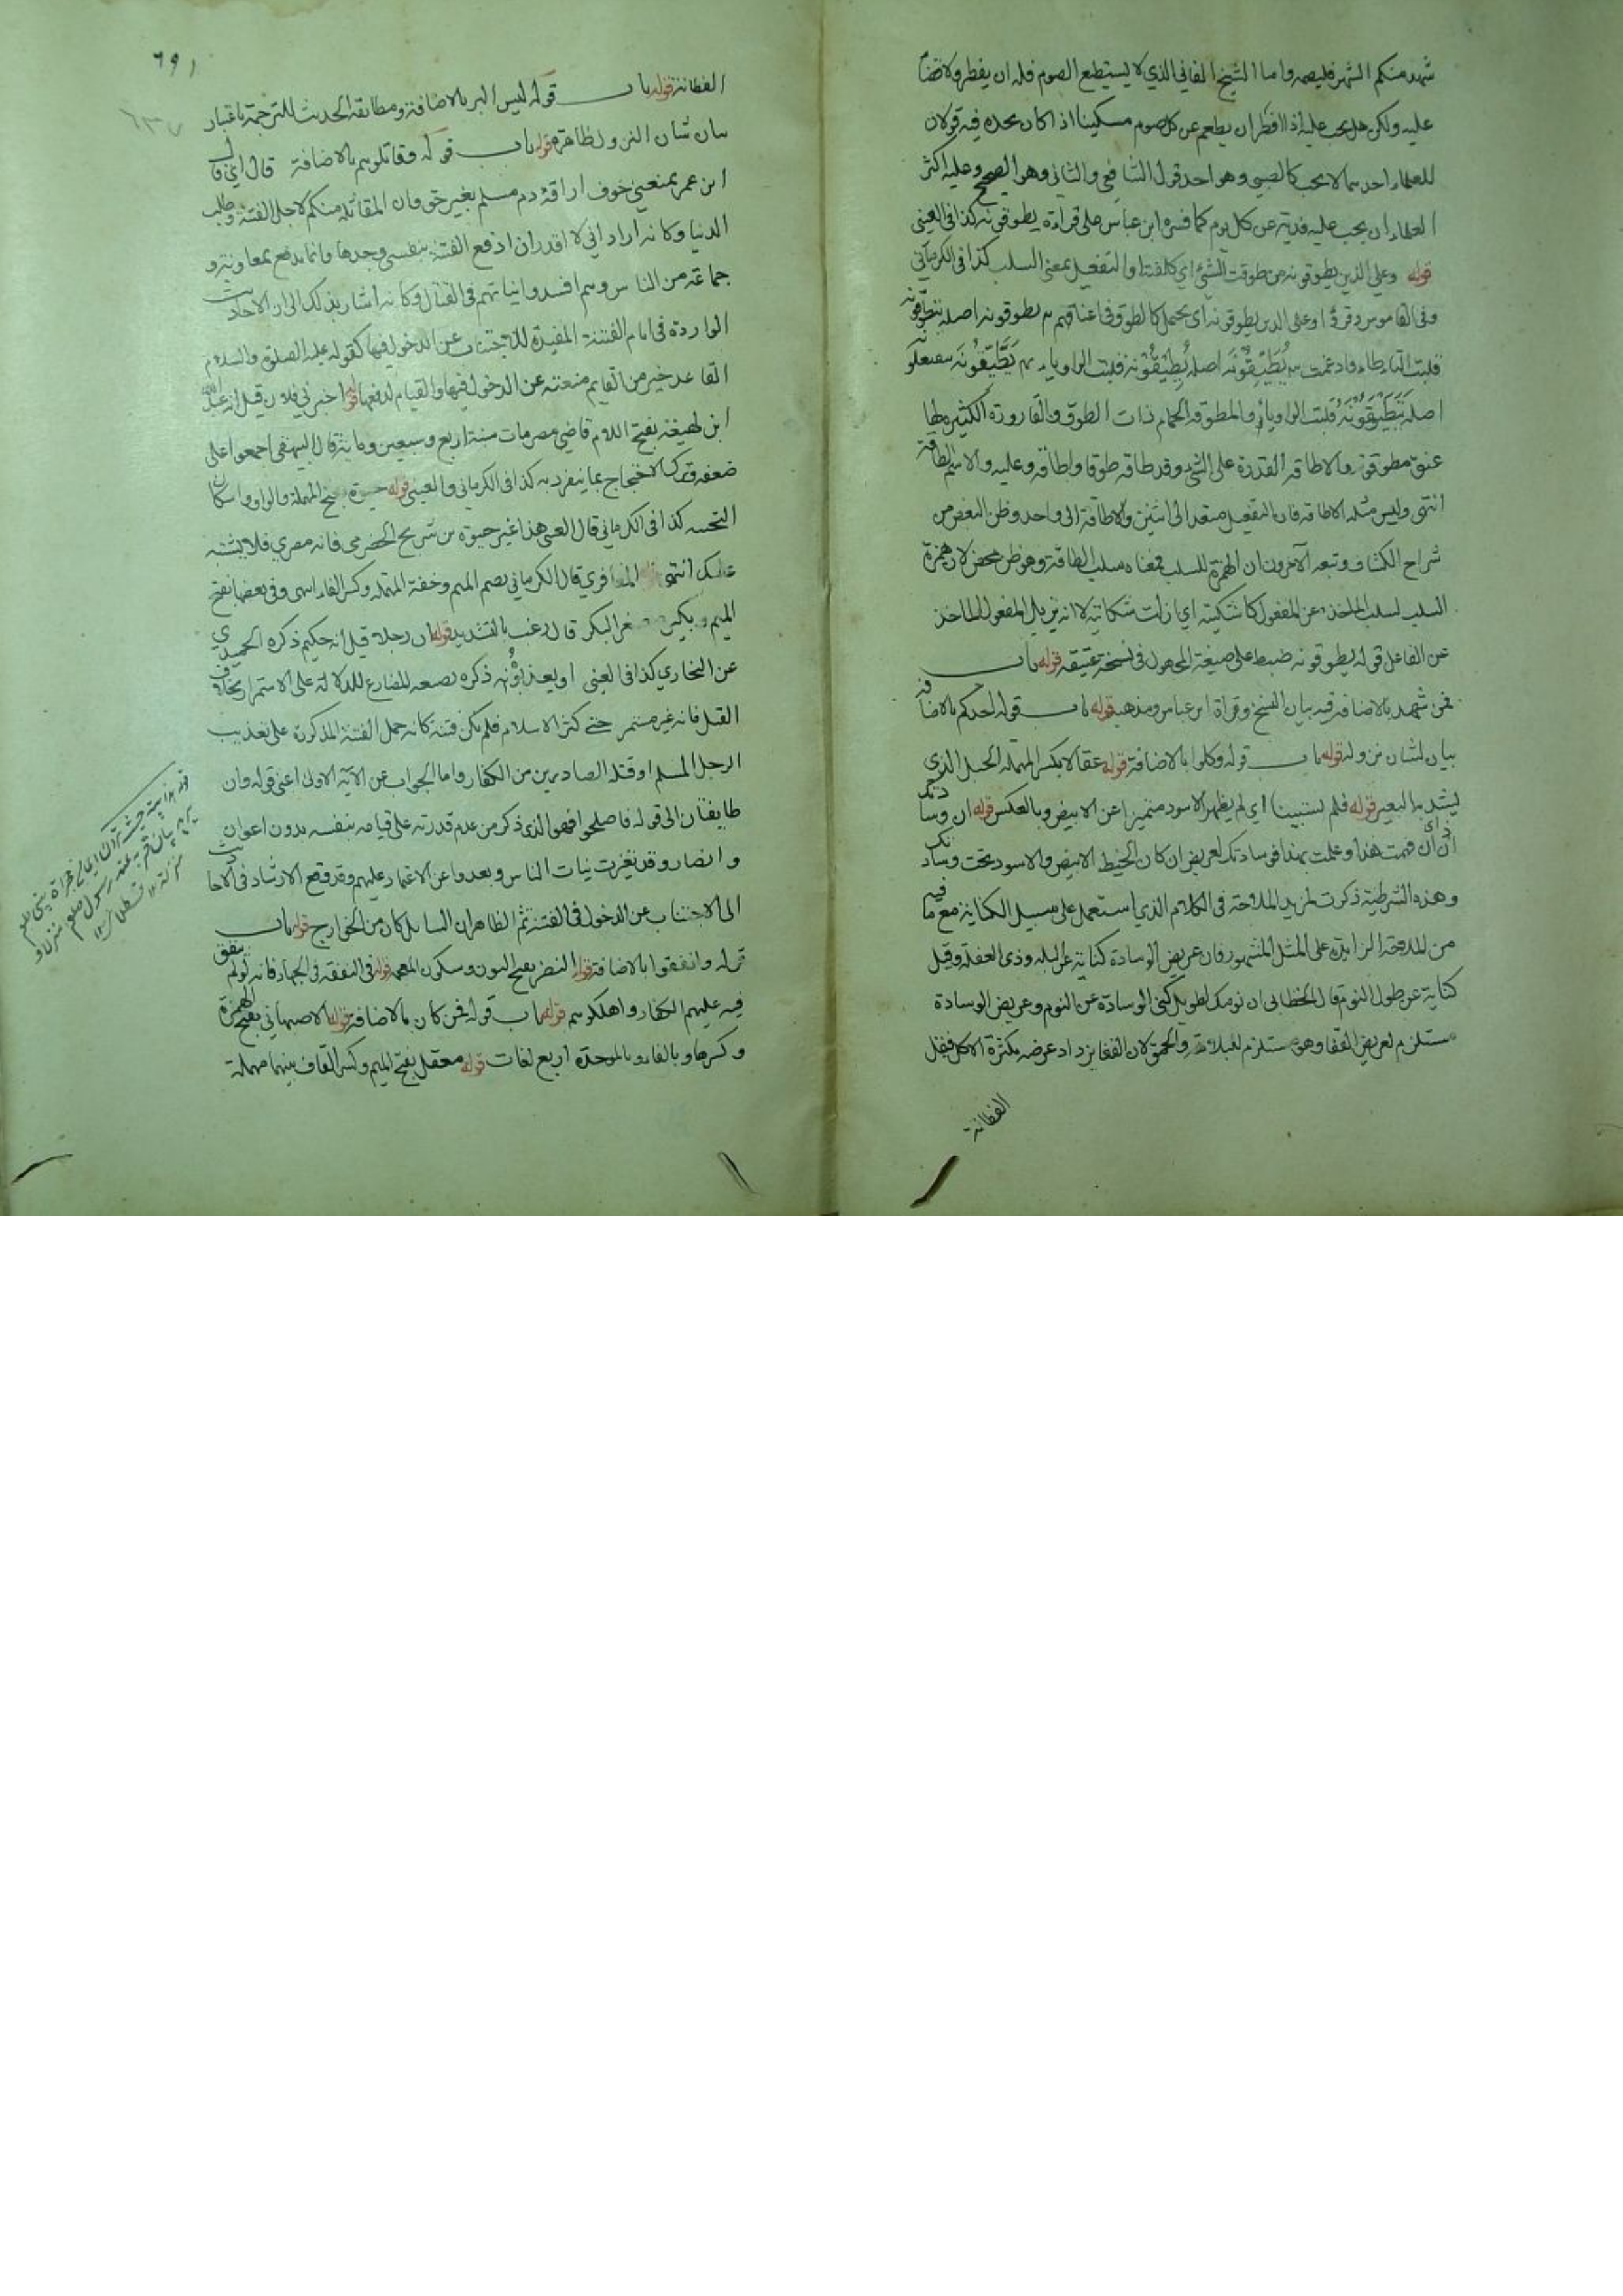 شهد منكم الشهر فليصمه واما الشيخ الفاني الذي لا يستطيع الصوم فله ان يفطر ولا قضاء
عليه ولكن هل يجب عليه اذا افطر ان يطعم عن كل يوم مسكينا اذا كان يجده فيه قولان
للعلماء احدهما لا يجب كالصبي وهو احد قولي الشافعي والثاني وهو الصحيح وعليه اكثر
العلماء ان يجب عليه فدية عن كل يوم كما فسره ابن عباس على قراءة يطوقونه كذا في العيني
قوله وعلى الذين يطوقونه من طوقت الشيء اي كلفته او التفعيل بمعنى السلب كذا في الكرماني
وفي القاموس وقرئ وعلى الذين يطوقونه اي يحمل كالطوق في اعناقهم يطوقونه اصله يتطوقونه
قلبت التاء طاء وادغمت يُطَيِّقُونَه اصله يُطَيْوَقُونَه قلبت الواو ياء يَطَّيَّقُونَه
اصله يَتَطَيْوَقُونَه قلبت الواو ياء والمطوقة الحمام ذات الطوق والقارورة الكبيرة لها
عنق مطوقة والاطاقة القدرة على الشيء وقد طاقه طوقا واطاقه وعليه والاسم الطاقة
انتهى وليس مثله الاطاقة فان التفعيل متعد الى اثنين والاطاقة الى واحد وظن البعض من
شراح الكشاف وتبعه الآخرون ان الهمزة للسلب فمعناه سلب الطاقة وهو ظن محض لان همزة
السلب لسلب الماخذ عن المفعول كاشكيته اي ازلت شكايته لا انه يزيل المفعول الماخذ
عن الفاعل قوله يطوقونه ضبط على صيغة المجهول في نسخة عتيقة قوله باب
فمن شهد بالاضافة فيه بيان النسخ وقراءة ابن عباس ومذهبه قوله باب قوله احل لكم بالاضافة
بيان لشان نزوله قوله باب قوله وكلوا بالاضافة قوله عقالا بكسر المهملة الحبل الذي
يشد به البعير قوله فلم يستبينا اي لم يظهر الاسود متميزا عن الابيض وبالعكس قوله ان وسادتك
اذا اي ان فهمت هذا وعلمت بهذا فوسادتك لعريض ان كان الخيط الابيض والاسود تحت وسادتك
وهذه الشرطية ذكرت لمزيد الملاحة في الكلام الذي استعمل على سبيل الكناية مع ما فيه
من الملاحة الزايدة على المثل المشهور فان عريض الوسادة كناية عن البله وذي الغفلة وقيل
كناية عن طول النوم قال الخطابي ان نومك لطويل كنى الوسادة عن النوم وعريض الوسادة
مستلزم لعريض القفا وهو مستلزم للبلاهة والحمق لان القفا يزداد عرضه بكثرة الاكل فيقل
الفطانة
٦٩١
٦٣٧
الفطانة قوله باب قوله ليس البر بالاضافة ومطابقة الحديث للترجمة باعتبار
بيان شان النزول ظاهرة قوله باب قوله وقاتلوهم بالاضافة قال اي قال
ابن عمر يمنعني خوف اراقة دم مسلم بغير حق وان المقاتلة منكم لاجل الفتنة وطلب
الدنيا وكانه اراد اني لا اقدر ان ادفع الفتنة بنفسي وحدها وانما يدفع بمعاونة و
جماعة من الناس وهم افسدوا نياتهم في القتال وكانه اشار بذلك الى ان الاحاديث
الواردة في ايام الفتنة المفيدة للاجتناب عن الدخول فيها كقوله عليه الصلوة والسلام
القاعد خير من القايم منعته عن الدخول فيها والقيام لدفعها قوله اخبرني فلان قيل انه عبد الله
ابن لهيعة بفتح اللام قاضي مصر مات سنة اربع وسبعين وماية قال البيهقي اجمعوا على
ضعفه وترك الاحتجاج بما ينفرد به كذا في الكرماني والعيني قوله حيوة بفتح المهملة والواو واسكان
التحتية كذا في الكرماني قال العيني هذا غير حيوة بن شريح الحضرمي فانه مصري فلا يشتبه
عليك انتهى المعافري قال الكرماني بضم الميم وخفة المهملة وكسر الفاء انتهى وفي بعضها بفتح
الميم وبكير مصغر البكر قال رغب بالتشديد قوله ان رجلا قيل انه حكيم ذكره الحميدي
عن البخاري كذا في العيني او يعذبوُنَه ذكره بصيغة المضارع للدلالة على الاستمرار بخلاف
القتل فانه غير مستمر حتى كثر الاسلام فلم تكن فتنة كانه حمل الفتنة المذكورة على تعذيب
الرجل المسلم او قتله الصادرين من الكفار واما الجواب عن الآية الاولى اعني قوله وان
طايفتان الى قوله فاصلحوا فهو الذي ذكر من عدم قدرته على قيامه بنفسه بدون اعوان
وانصار وقد تغيرت نيات الناس وبعدوا عن الاعتماد عليهم وقد وقع الارشاد في الاحاديث
الى الاجتناب عن الدخول في الفتنة ثم الظاهر ان السايل كان من الخوارج قوله باب
قوله وانفقوا بالاضافة قوله النضر بفتح النون وسكون المعجمة قوله في النفقة في الجهاد فانه لو لم ينفق
فيه عليهم الكفار واهلكوهم قوله باب قوله فمن كان بالاضافة قوله الاصبهاني بفتح الهمزة
وكسرها وبالفاء وبالموحدة اربع لغات قوله معقل بفتح الميم وكسر القاف بينهما مهملة